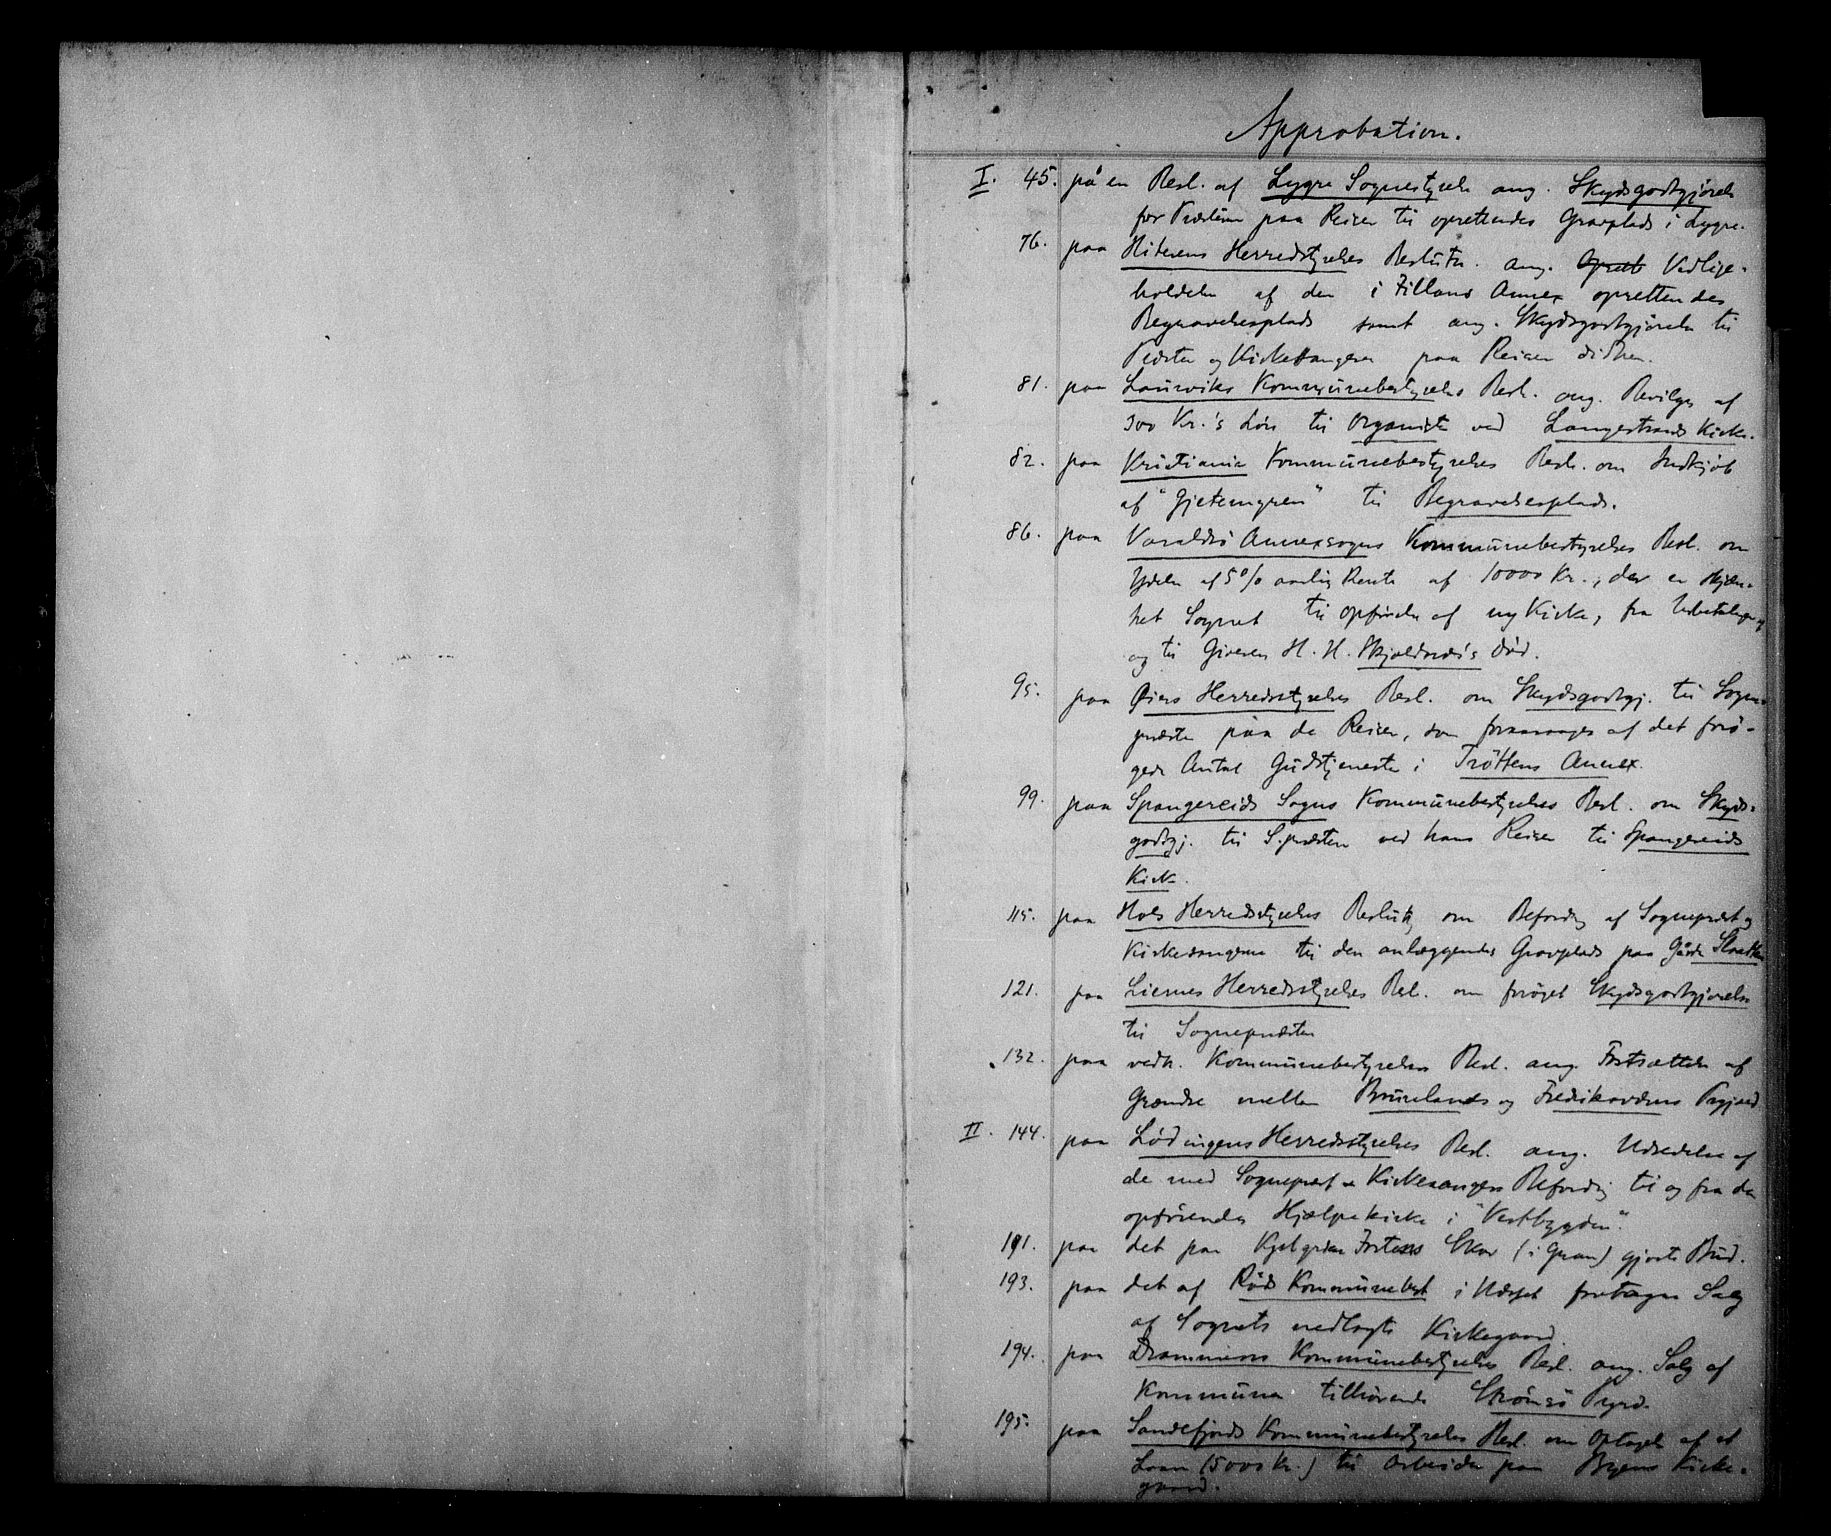 Approbation.
I. 45. på en Resl. af Lygre Sognestyrelse ang. Skydsgodtgjörelse
for Præsten paa Reiser til oprettendes Gravplads i Lygre.
76. paa Hiterens Herredsstyrelses Beslutn. ang. Vedlige-
holdelse af den i Fillans Annex oprettendes
Begravelsesplads samt ang. Skydsgodtgjörelse til
Præsten og Kirkesangeren paa Reiser didhen.
81. paa Laurviks Kommunebestyrelses Besl. ang. Bevilgn. af
300 Kr.'s Lön til Organisten ved Langestrands Kirke.
82. paa Kristiania Kommunebestyrelses Besl. om Indkjöb
af "Gjetemyren" til Begravelsesplads.
86. paa Varaldsö Annexsogns Kommunebestyrelses Besl. om
Ydelse af 5% aarlig Rente af 10000 Kr., der er skjæn-
ket Sognet til Opförelse af ny Kirke, fra Udbetalingen
og til Giveren H. H. Skjeldnæs's Död.
95. paa Øiers Herredsstyrelses Besl. om Skydsgodtgj. til Sogne-
præsten paa de Reiser, som foraarsages af det forö-
gede Antal Gudstjenester i Tröttens Annex.
99. paa Spangereids Sogns Kommunebestyrelses Besl. om Skyds-
godtgj. til S.præsten ved hans Reiser til Spangereids
Kirke.
115. paa Hols Herredsstyrelses Beslutn. om Befordrg. af Sognepræst og
Kirkesangeren til den anlæggendes Gravplads paa Gården
121. paa Liernes Herredsstyrelses Besl. om foröget Skydsgodtgjörelse
til Sognepræsten
132. paa vedk. Kommunebestyrelsers Besl. ang. Fastsættelse af
Grændse mellem Brunlanes og Fredriksværns Prgjæld
II. 144. paa Lødingens Herredsstyrelses Besl. ang. Udredelse af
de med Sognepræst og Kirkesangers Befordrg. til og fra den
opförendes Hjælpekirke i "Vestbygden".
191. paa det paa Skov (i Gran) gjorte Bud.
193. paa det af Röds Kommunebest. i Næsset foretagne Salg
af Sognets nedlagte Kirkegaard.
194. paa Drammens Kommunebestyrelses Besl. ang. Salg af
Kommunen tilhörende Strömsö Prgrd.
195. paa Sandefjords Kommunebestyrelses Besl. om Optagelse af et
Laan (5000 Kr.) til Arbeider paa Byens Kirke-
gaard.